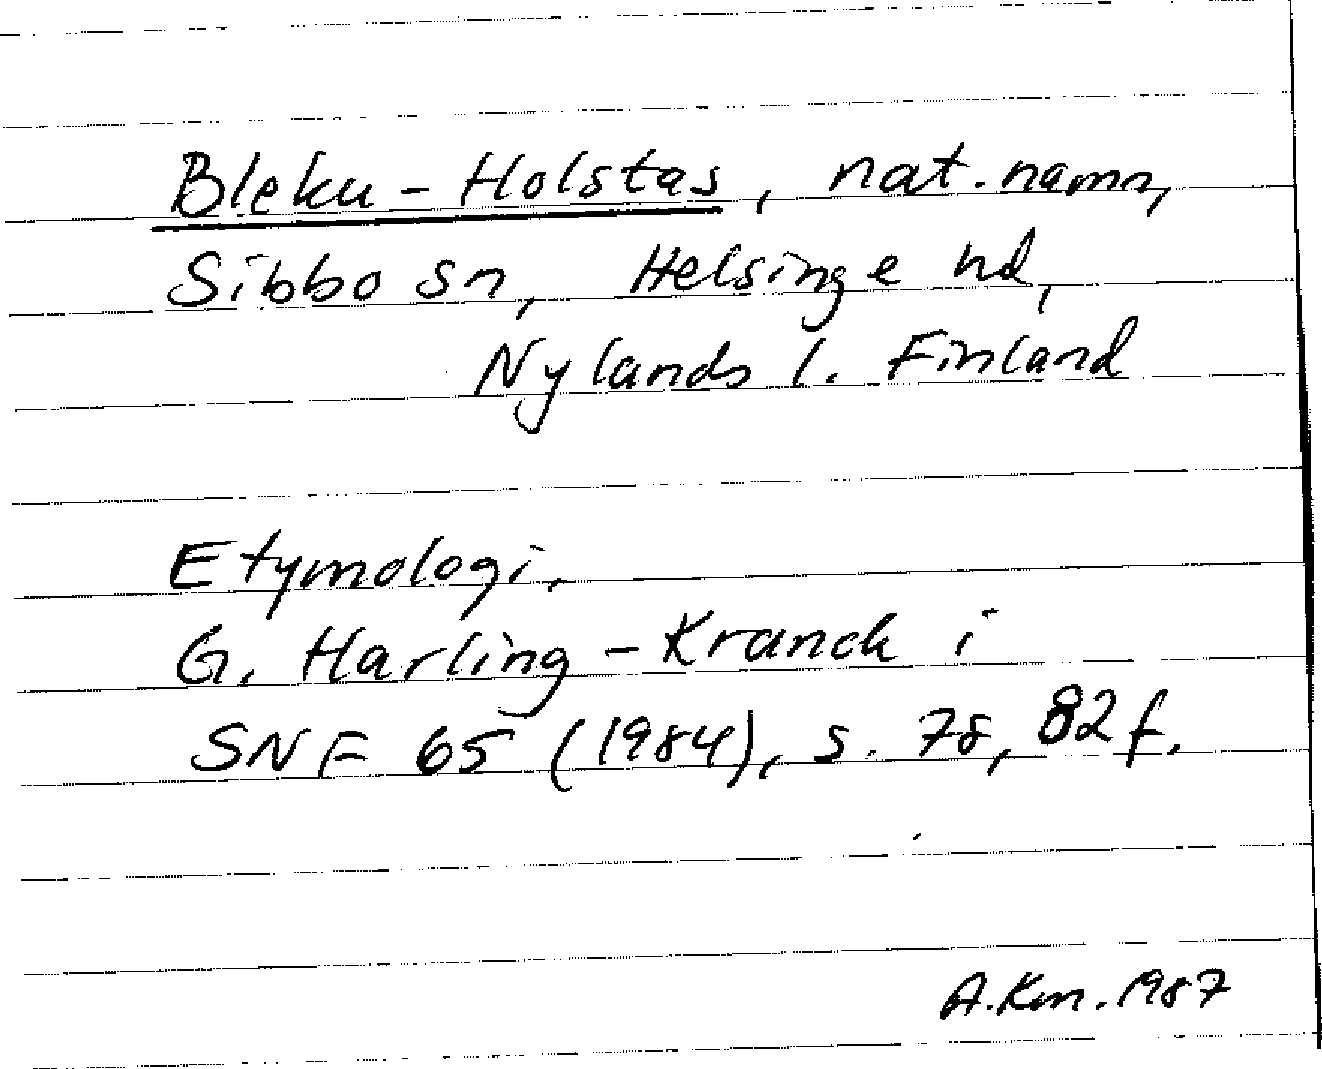 Bleku-Holstas, nat.namn,
Sibbo sn, Helsinge hd,
Nylands l. Finland
Etymologi.
G. Harling-Kranck i
SNF 65 (1984), s. 78, 82 f.
A.Km. 1987